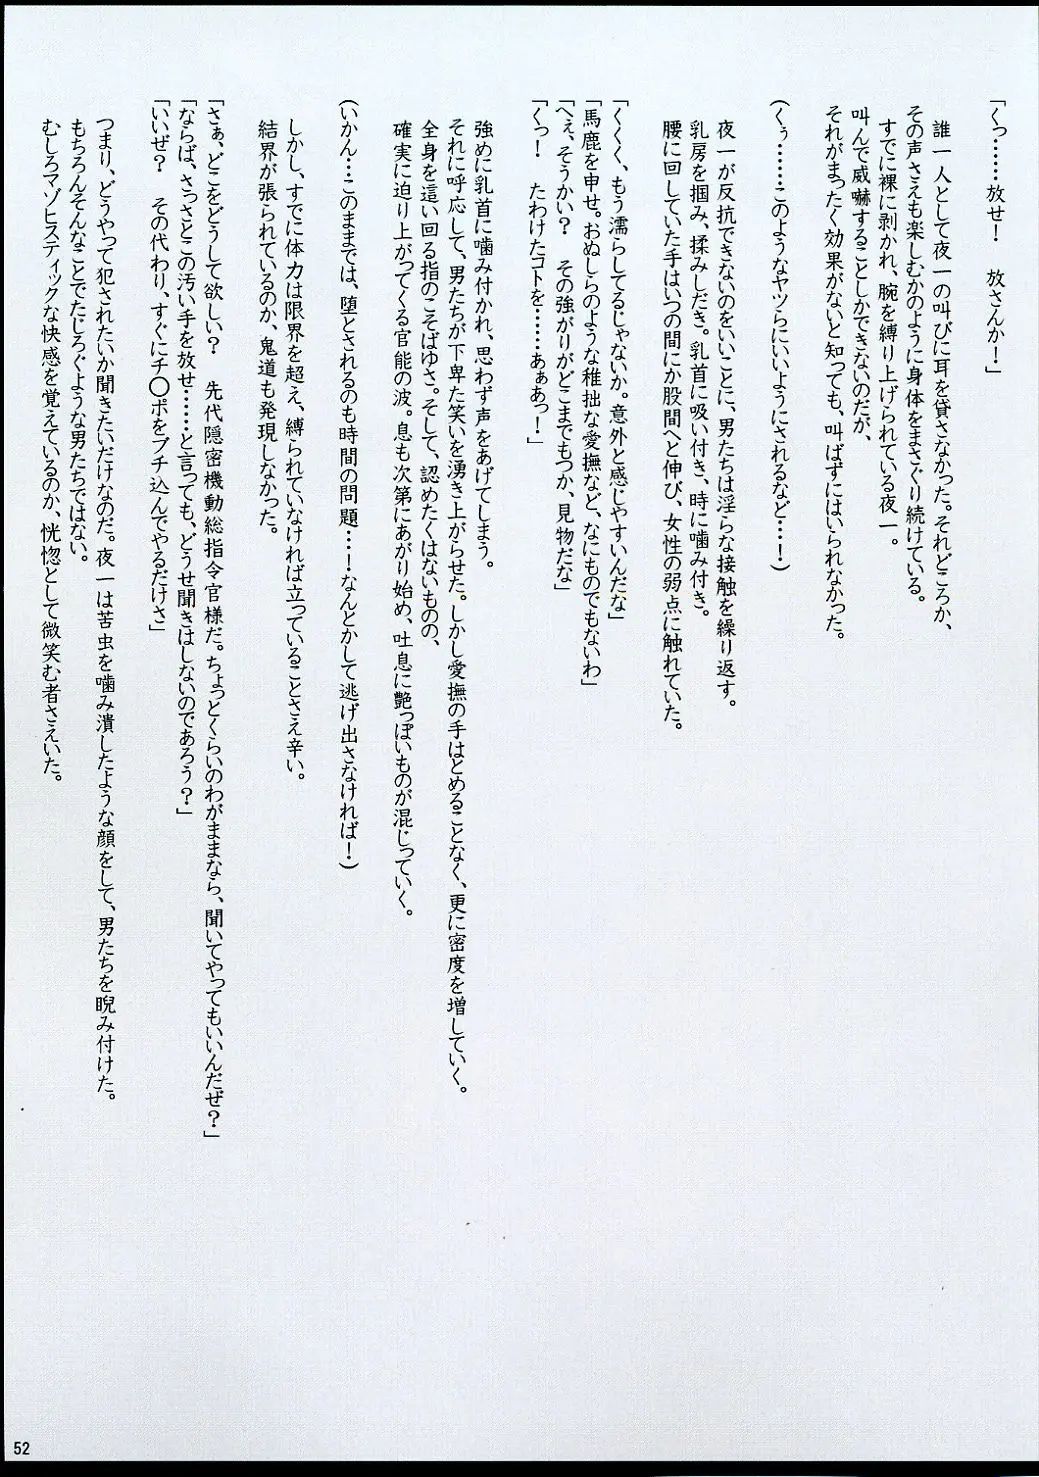 「くっ……放せ！　放さんか！」
誰一人として夜一の叫びに耳を貸さなかった。それどころか、
その声さえも楽しむかのように身体をまさぐり続けている。
すでに裸に剥かれ、腕を縛り上げられている夜一。
叫んで威嚇することしかできないのだが、
それがまったく効果がないと知っても、叫ばずにはいられなかった。
（くぅ……このようなヤツらにいいようにされるなど…！）
夜一が反抗できないのをいいことに、男たちは淫らな接触を繰り返す。
乳房を掴み、揉みしだき。乳首に吸い付き、時に噛み付き。
腰に回していた手はいつの間にか股間へと伸び、女性の弱点に触れていた。
「くくく、もう濡らしてるじゃないか。意外と感じやすいんだな」
「馬鹿を申せ。おぬしらのような稚拙な愛撫など、なにものでもないわ」
「へぇ、そうかい？　その強がりがどこまでもつか、見物だな」
「くっ！　たわけたコトを……あぁあっ！」
強めに乳首に噛み付かれ、思わず声をあげてしまう。
それに呼応して、男たちが下卑た笑いを湧き上がらせた。しかし愛撫の手はとめることなく、更に密度を増していく。
全身を這い回る指のこそばゆさ。そして、認めたくはないものの、
確実に迫り上がってくる官能の波。息も次第にあがり始め、吐息に艶っぽいものが混じっていく。
（いかん…このままでは、堕とされるのも時間の問題…！なんとかして逃げ出さなければ！）
しかし、すでに体力は限界を超え、縛られていなければ立っていることさえ辛い。
結界が張られているのか、鬼道も発現しなかった。
「さぁ、どこをどうして欲しい？　先代隠密機動総指令官様だ。ちょっとくらいのわがままなら、聞いてやってもいいんだぜ？」
「ならば、さっさとこの汚い手を放せ……と言っても、どうせ聞きはしないのであろう？」
「いいぜ？　その代わり、すぐにチ〇ポをブチ込んでやるだけさ」
つまり、どうやって犯されたいか聞きたいだけなのだ。夜一は苦虫を噛み潰したような顔をして、男たちを睨み付けた。
もちろんそんなことでたじろぐような男たちではない。
むしろマゾヒスティックな快感を覚えているのか、恍惚として微笑む者さえいた。
52